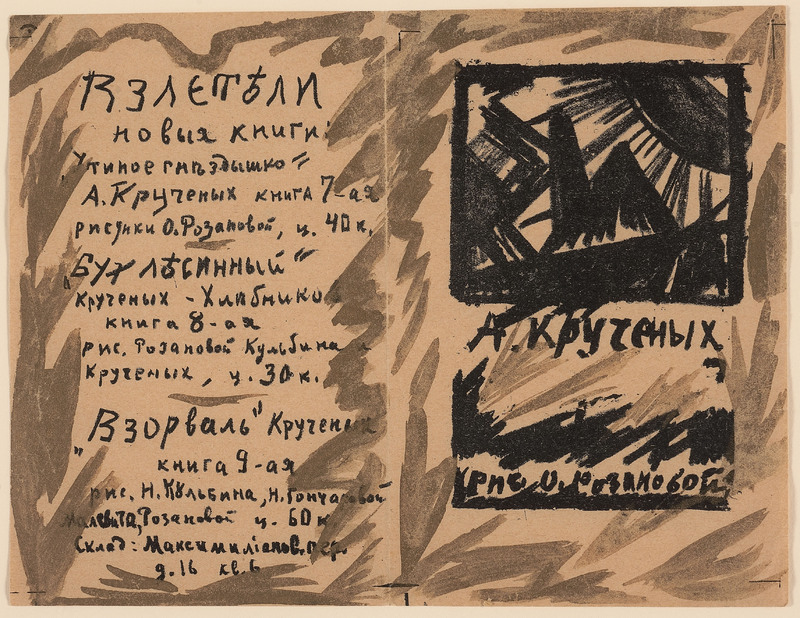 ВЗЛЕТѢЛИ
новыя книги:
"тиное гнѣздышко"
А. Крученых книга 7-ая
рисунки О. Розановой, ц. 40 к.
"Бух лѣсинный"
Крученых - Хлѣбников
книга 8-ая
рис. Розановой Кульбина и
Крученых, ц. 30 к.
"Взорваль" Крученых
книга 9-ая
рис. Н. Кульбина, Н. Гончаровой
Малевича, Розановой ц. 60 к
Склад: Максимиліанов. пер.
д. 16 кв. 6
А. Крученых
рис О. Розановой